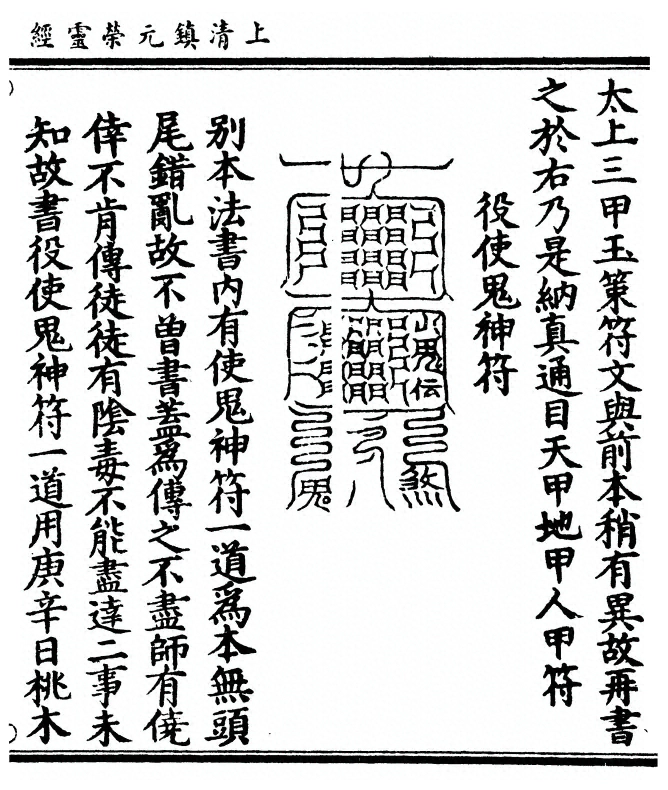 上清鎮元榮靈經
太上三甲玉策符文與前本稍有異故再書
之於右乃是納真通目天甲地甲人甲符
役使鬼神符
煞
鬼
別本法書內有使鬼神符一道爲本無頭
尾錯亂故不曾書蓋爲傳之不盡師有僥
倖不肯傳徒徒有陰毒不能盡達二事未
知故書役使鬼神符一道用庚辛日桃木